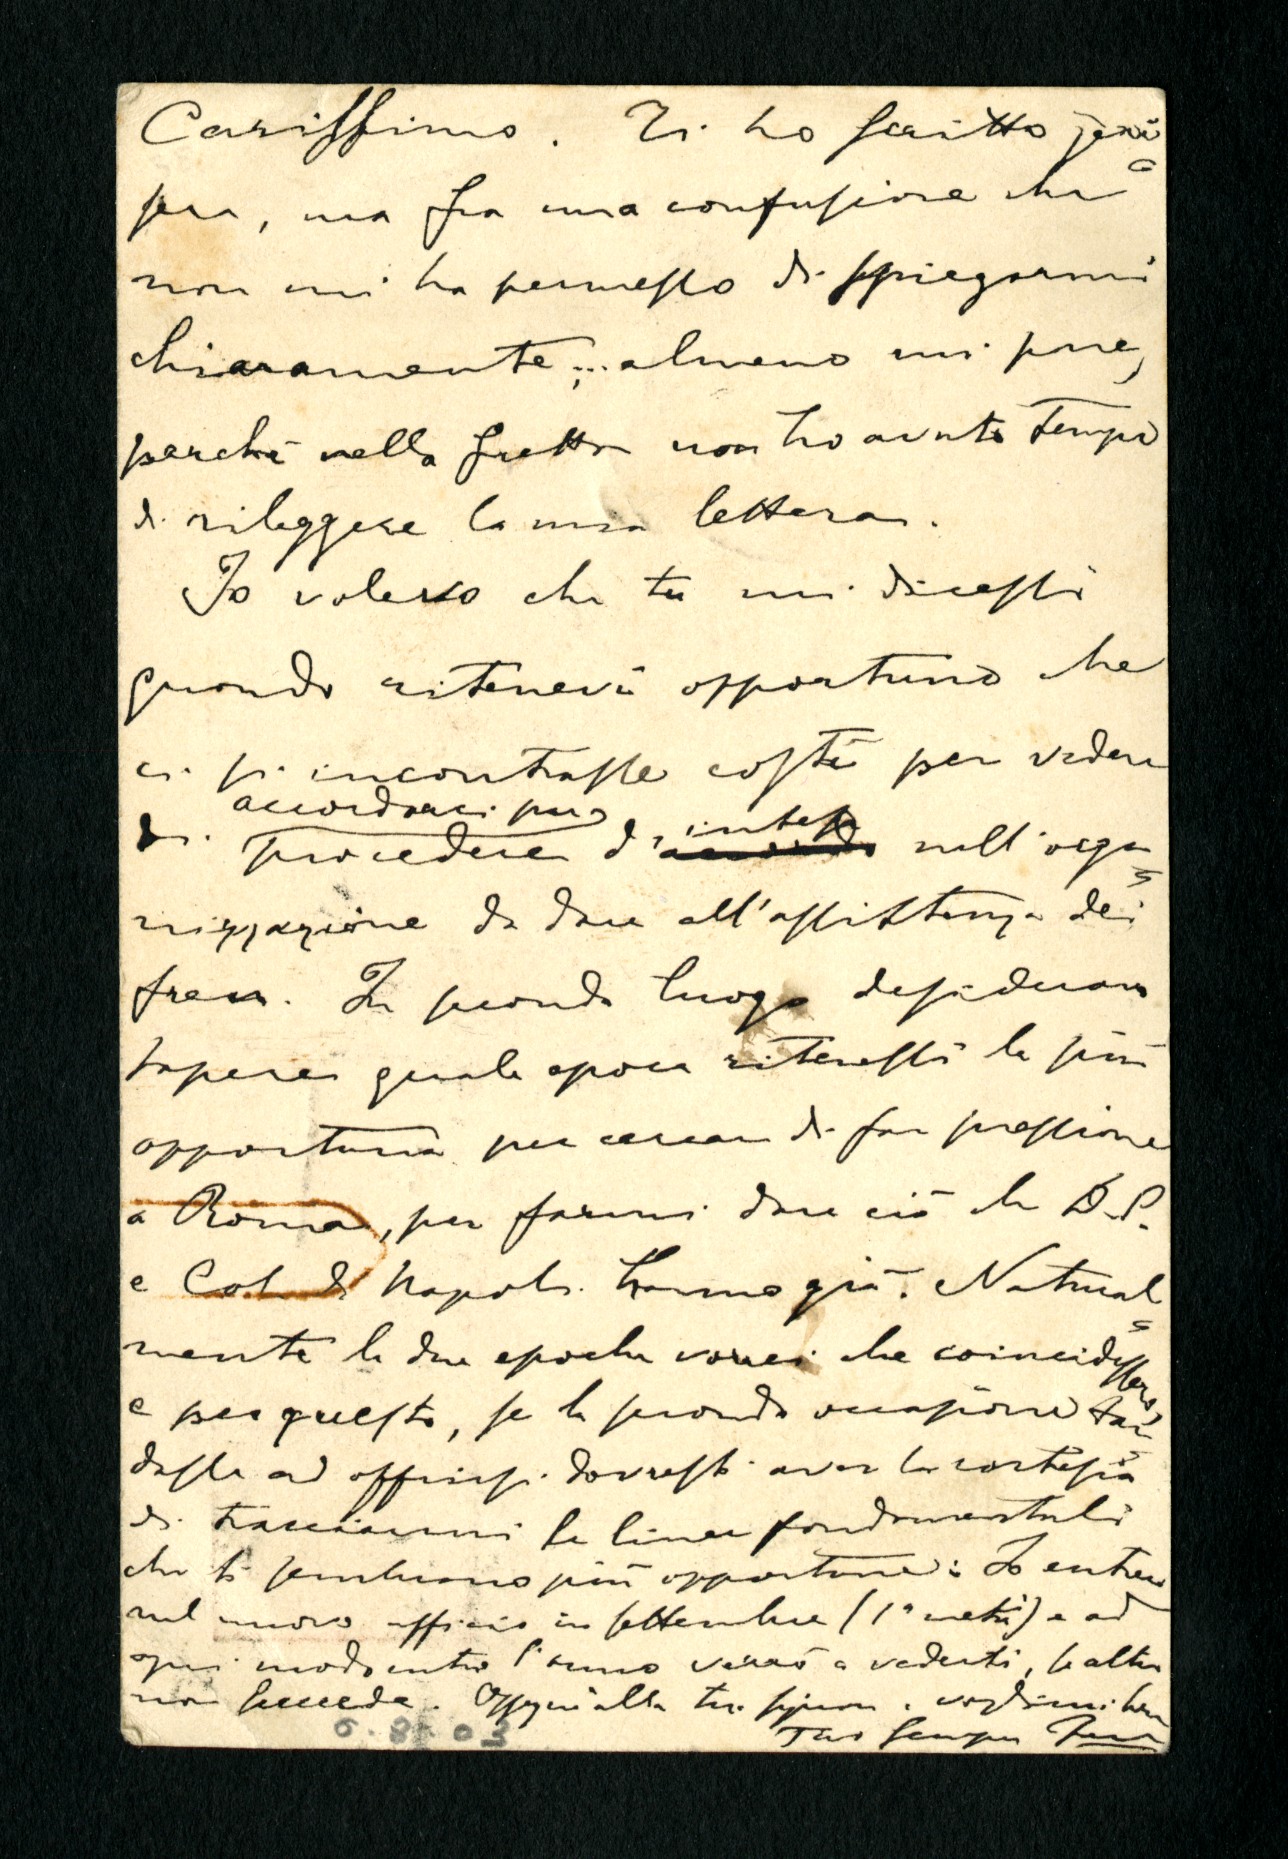 Carissimo. Ti ho scritto jeri
sera, ma fra una confusione che
non mi ha permesso di spiegarmi
chiaramente;... almeno mi pare,
perchè nella fretta non ho avuto tempo
di rileggere la mia lettera.
Io volevo che tu mi dicessi
quando ritenevi opportuno che
ci si incontrasse costì per vedere
di accordarci per
procedere d'intesa nell'orga-
nizzazione da dare all'assistenza dei
fren. In secondo luogo desideravo
sapere quale epoca ritenessi la più
opportuna per cercare di far pressione
a Roma, per farmi dare ciò che B. P.
e Col. di Napoli hanno già. Natural-
mente le due epoche vorrei che coincidessero
e per questo, se la seconda occasione tar-
dasse ad offrirsi dovresti aver la cortesia
di tracciarmi le linee fondamentali
che ti sembrano più opportune: Io entrerò
nel nuovo ufficio in settembre (1a metà) e ad
ogni modo entro l'anno verrò a vederti, se altro
non succede. Ossequi alla tua signora. vogliimi bene
Tuo sempre
6. 8. 03